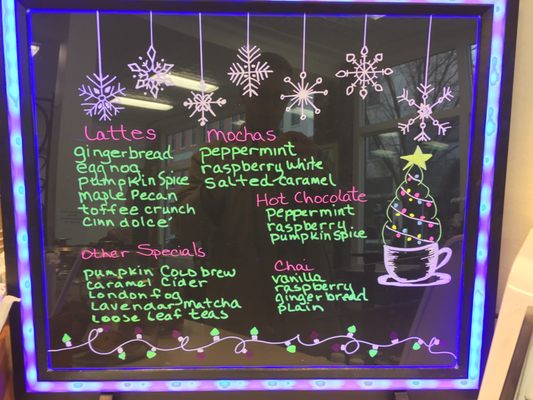 Lattes
gingerbread
eggnog
pumpkin Spice
maple Pecan
toffee crunch
Cinn dolce
Mochas
peppermint
raspberry White
Salted-caramel
Hot Chocolate
Peppermint
raspberry
pumpkin Spice
Other Specials
pumpkin Cold brew
caramel Cider
London fog
Lavendar-matcha
Loose Leaf teas
Chai
vanilla
raspberry
gingerbread
plain